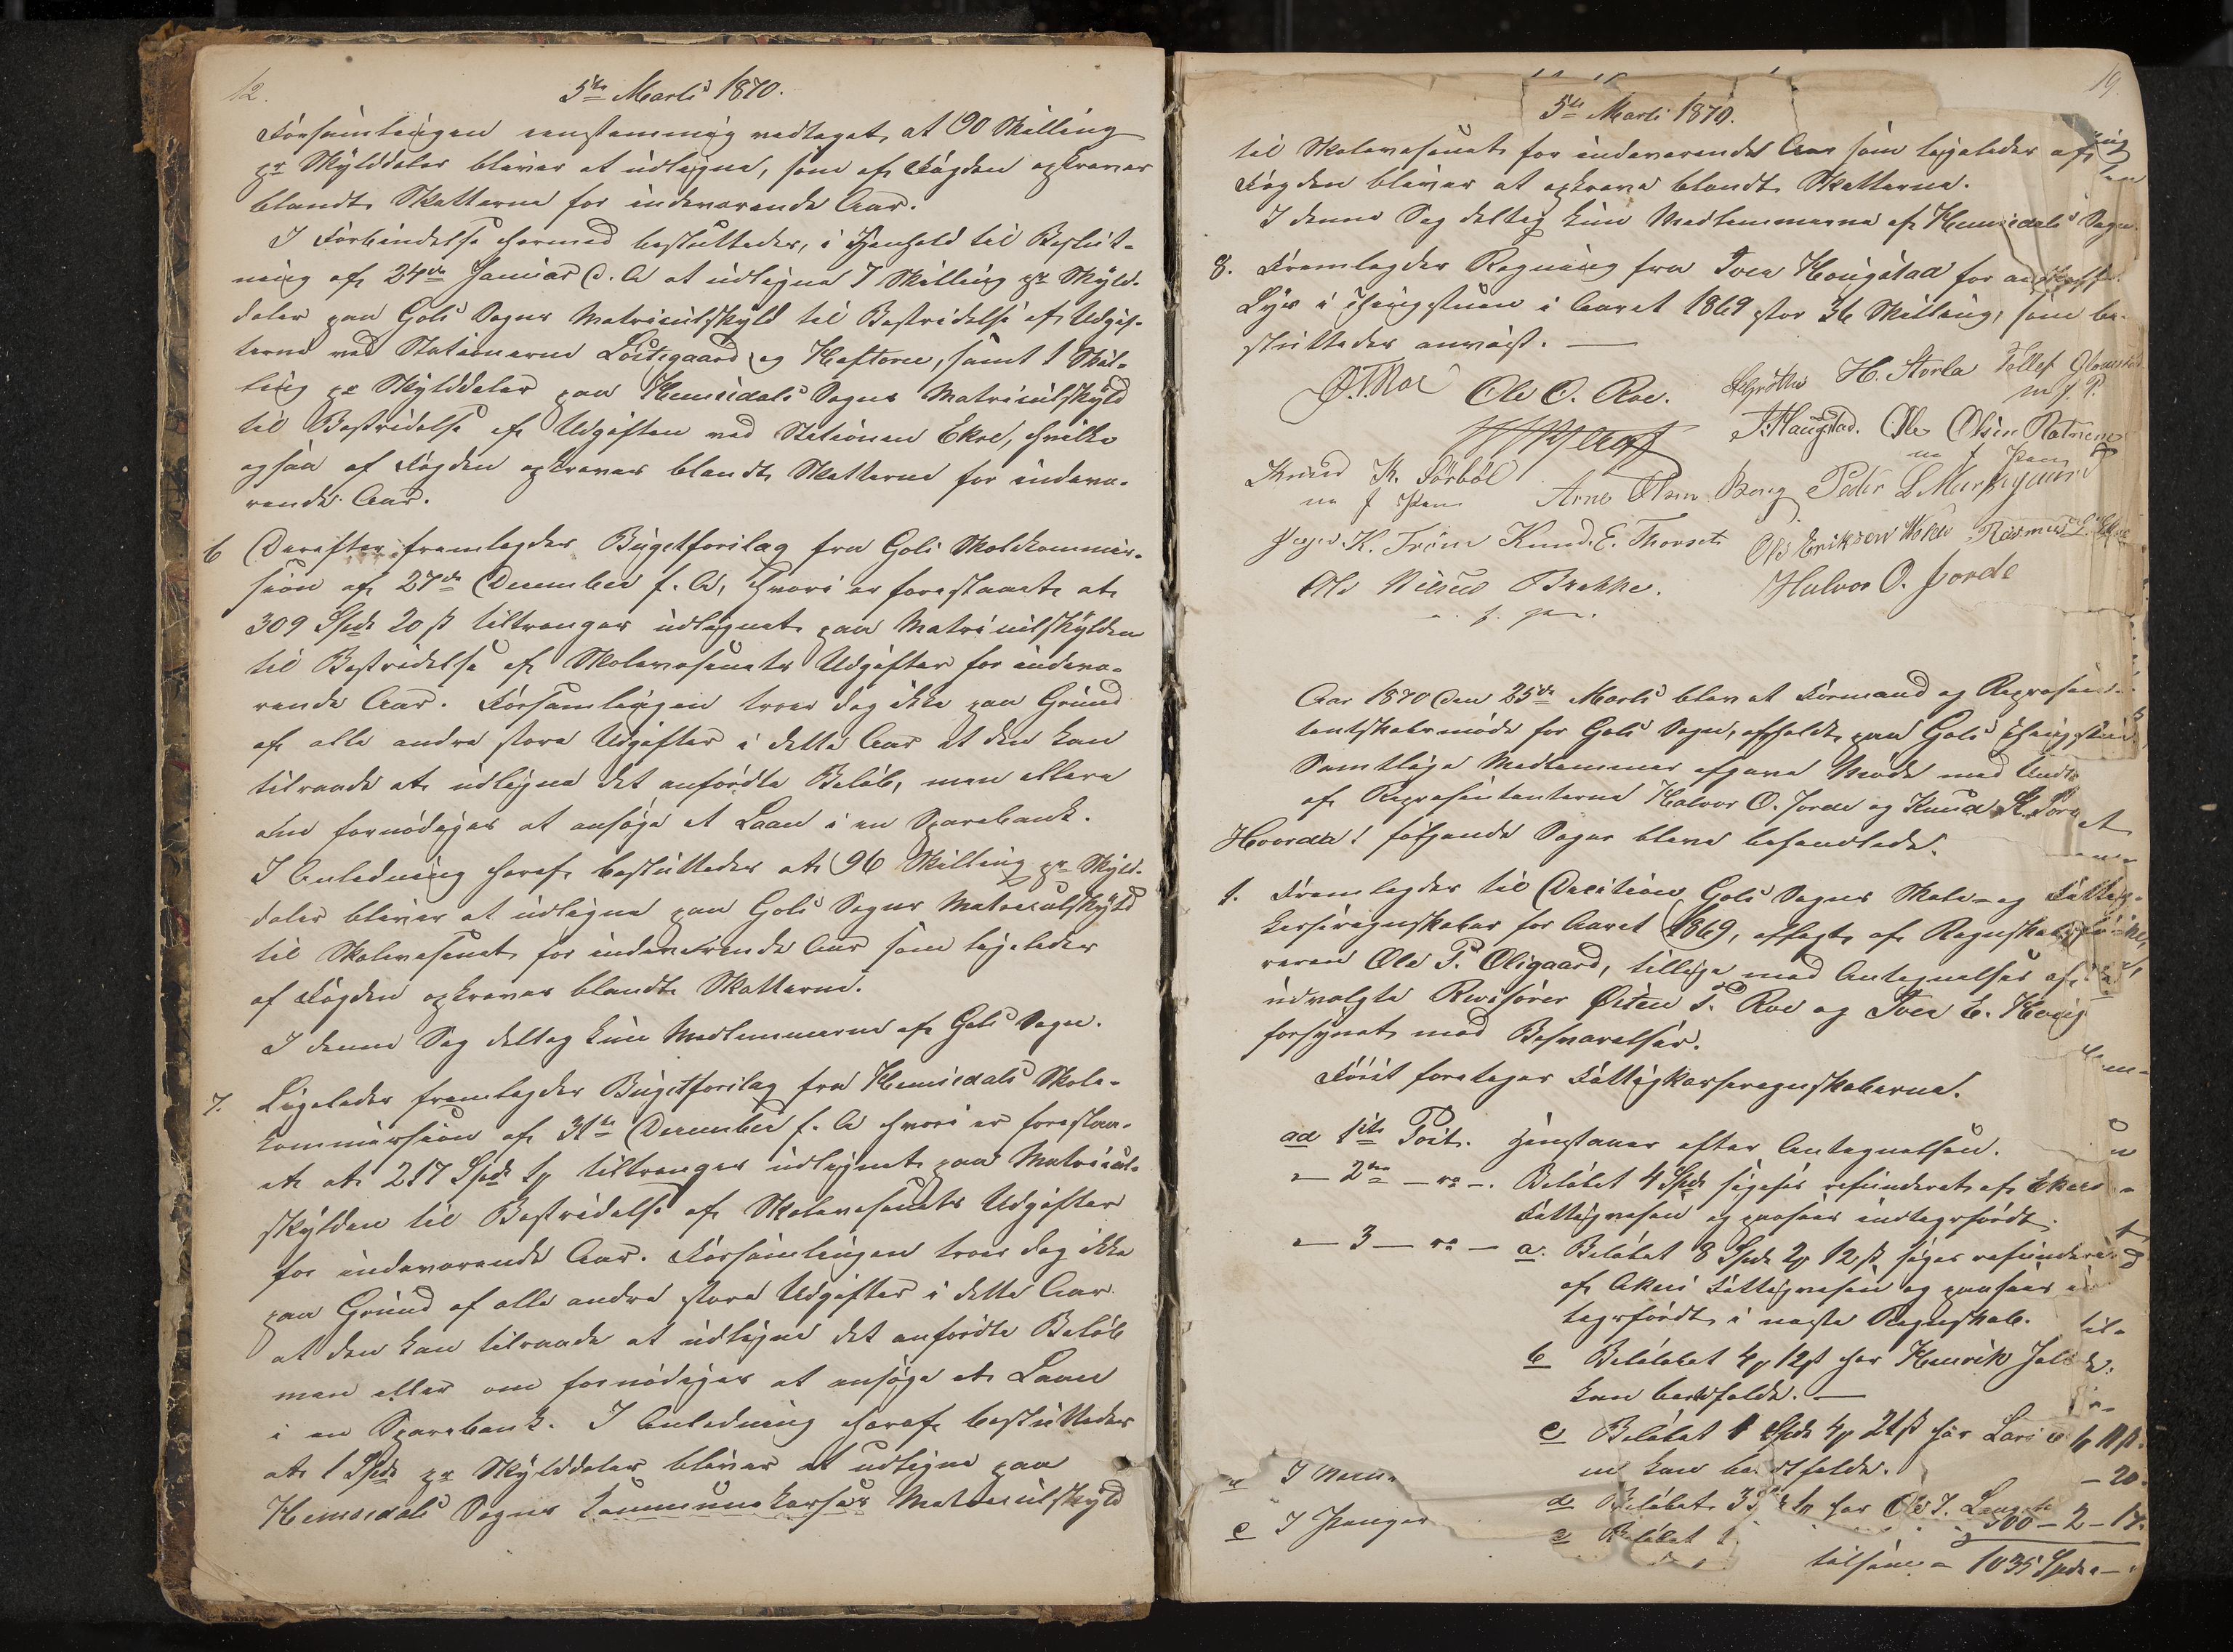 12.
5te Marts 1870.
Forsamlingen eenstemmig vedtaget, at 90 Skilling
pr Skylddaler bliver at udligne, som af Fogden opkræves
blandt Skatterne for indeværende Aar.
I Forbindelse hermed besluttedes, i Henhold til Beslut-
ning af 24de Januar d. A at udligne 7 Skilling pr Skyld-
daler paa Gols Sogns Matriculskyld til Bestridelse af Udgif-
terne ved Stationerne Löstegaard og Haftorn, samt 1 Skil-
ling pr Skylddaler paa Hemsedals Sogns Matriculskyld
til Bestridelse af Udgiften ved Stationen Ekre, hvilke
ogsaa af Fogden opkræves blandt Skatterne for indevæ-
rende Aar.
6 Derefter fremlagdes Bugetforslag fra Gols Skolekommis-
sion af 27de December f. A, hvori er forestaaet at
309 Spd 20 ß tiltrænges udlignet paa Matriculskylden
til Bestridelse af Skolevæsenets Udgifter for indevæ-
rende Aar. Forsamlingen troer dog ikke paa Grund
af alle andre store Udgifter i dette Aar at den kan
tilraade at udligne det anførdte Beløb, men ellers
om fornødiges at ansøge et Laan i en Sparebank.
I Anledning heraf besluttedes at 96 Skilling pr Skyld-
daler bliver at udligne paa Gols Sogns Matriculskyld
til Skolevæsenet for indeværende Aar som ligeledes
af Fogden opkræves blandt Skatterne.
I denne Sag deltog kun Medlemmerne af Gols Sogn.
7. Ligeledes fremlagdes Bugetforslag fra Hemsedals Skole-
kommission af 31te December f. A hvori er foreslaa-
et at 217 Spd tiltrænges udlignet paa Matricul-
skylden til Bestridelse af Skolevæsenets Udgifter
for indeværende Aar. Forsamlingen troer dog ikke
paa Grund af alle andre store Udgifter i dette Aar
at den kan tilraade at udligne det anførdte Beløb
men ellers om fornødiges at ansøge et Laan
i en Sparebank. I Anledning heraf besluttedes
at 1 Spd pr Skylddaler bliver at udligne paa
Hemsedals Sogns Kommunekasses Matriculskyld
19.
5te Marts 1870.
til Skolevæsenet for indeværende Aar som ligeledes af
Fogden bliver at opkræve blandt Skatterne.
I denne Sag deltog kun Medlemmerne af Hemsedals Sogn.
8. Fremlagdes Regning fra Iver Hougstad for
Lys i Thingstuen i Aaret 1869 stor 36 Skilling, som be-
sluttedes anvist.
O. T. Roe Ole O. Roe. H. Storla Tollef
m f. P.
Haugstad. Ole Olsen
Knud K. Sörböl
m f Pen Arne Olsen Berg Peder L
K. Tröim Knud. E. Thorset Ole Eriksen
Ole Nilsen Brekke. Halvor O. Jorde
f. pen.
Aar 1870 den 25de Marts blev et Formand og Repræsen-
tantskabsmøde for Gols Sogn, afholdt paa Gols Thingstue
Samtlige Medlemmer afgave Møde med Undt
af Repræsentanterne Halvor O. Jorde og Knud K.
Hvorda! følgende Sager bleve behandlede.
1. Fremlagdes til Decition Gols Sogns Skole- og Fattig-
kasseregnskaber for Aaret 1869, aflagt af Regnskabsfø-
reren Ole P. Øligaard, tillige med Antegnelser af
udvalgte Revisorer Østen T. Roe og Iver E. Houg
forsynet med Besvarelser.
Først foretoges Fattigkasseregnskaberne.
ad 1ste Post. Henstaaer efter Antegnelsen.
— 2den — " —. Beløbet 4 Spd søges refunderet af Ekers
Fattigvæsen og paasees indtægsførdt.
— 3 — " — a. Beløbet 8 Spd 2 12 ß søges refundere
af Akers Fattigvæsen og paasees
tægsførdt i næste Regnskab.
b Beløbet 4 12 ß har Henrik
kan beholde.
c Beløbet 1 Spd 4 21 ß har Lars
kan beholde.
d Beløbet har Ole T.
e Beløbet
e I Penger
300 – 2 – 17.
tilsam – 1035 Spd